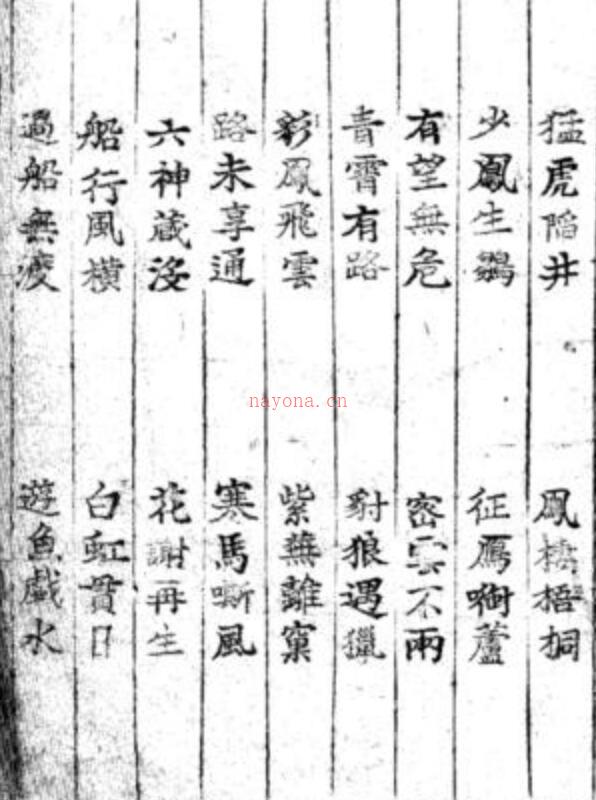 猛虎陷井 鳳棲梧桐
少鳳生鶵 征鴈啣蘆
有望無危 密雲不雨
青霄有路 豺狼遇獵
彩鳳飛雲 紫燕離窠
路未享通 寒馬嘶風
六神藏沒 花謝再生
船行風横 白虹貫日
過船無渡 遊魚戲水
nayona.cn